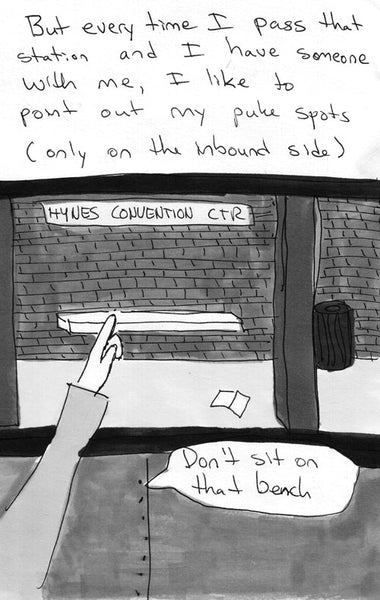 But every time I pass that
station and I have someone
with me, I like to
point out my puke spots
(only on the inbound side)
HYNES CONVENTION CTR
Don't sit on
that bench